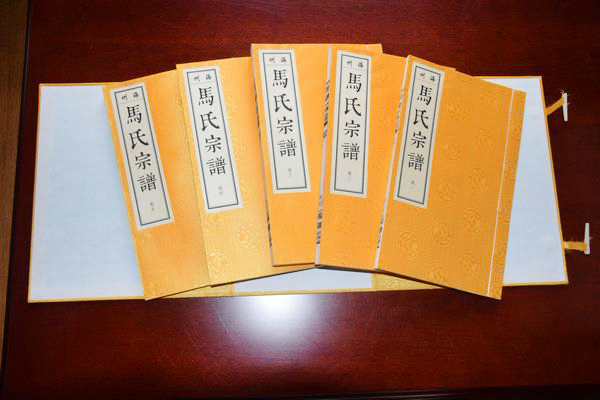 海州
馬氏宗譜
卷一
海州
馬氏宗譜
卷二
海州
馬氏宗譜
卷三
海州
馬氏宗譜
卷四
海州
馬氏宗譜
卷五